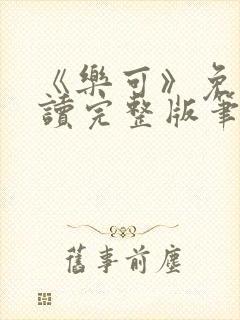 《樂可》免
讀完整版筆
舊事前塵